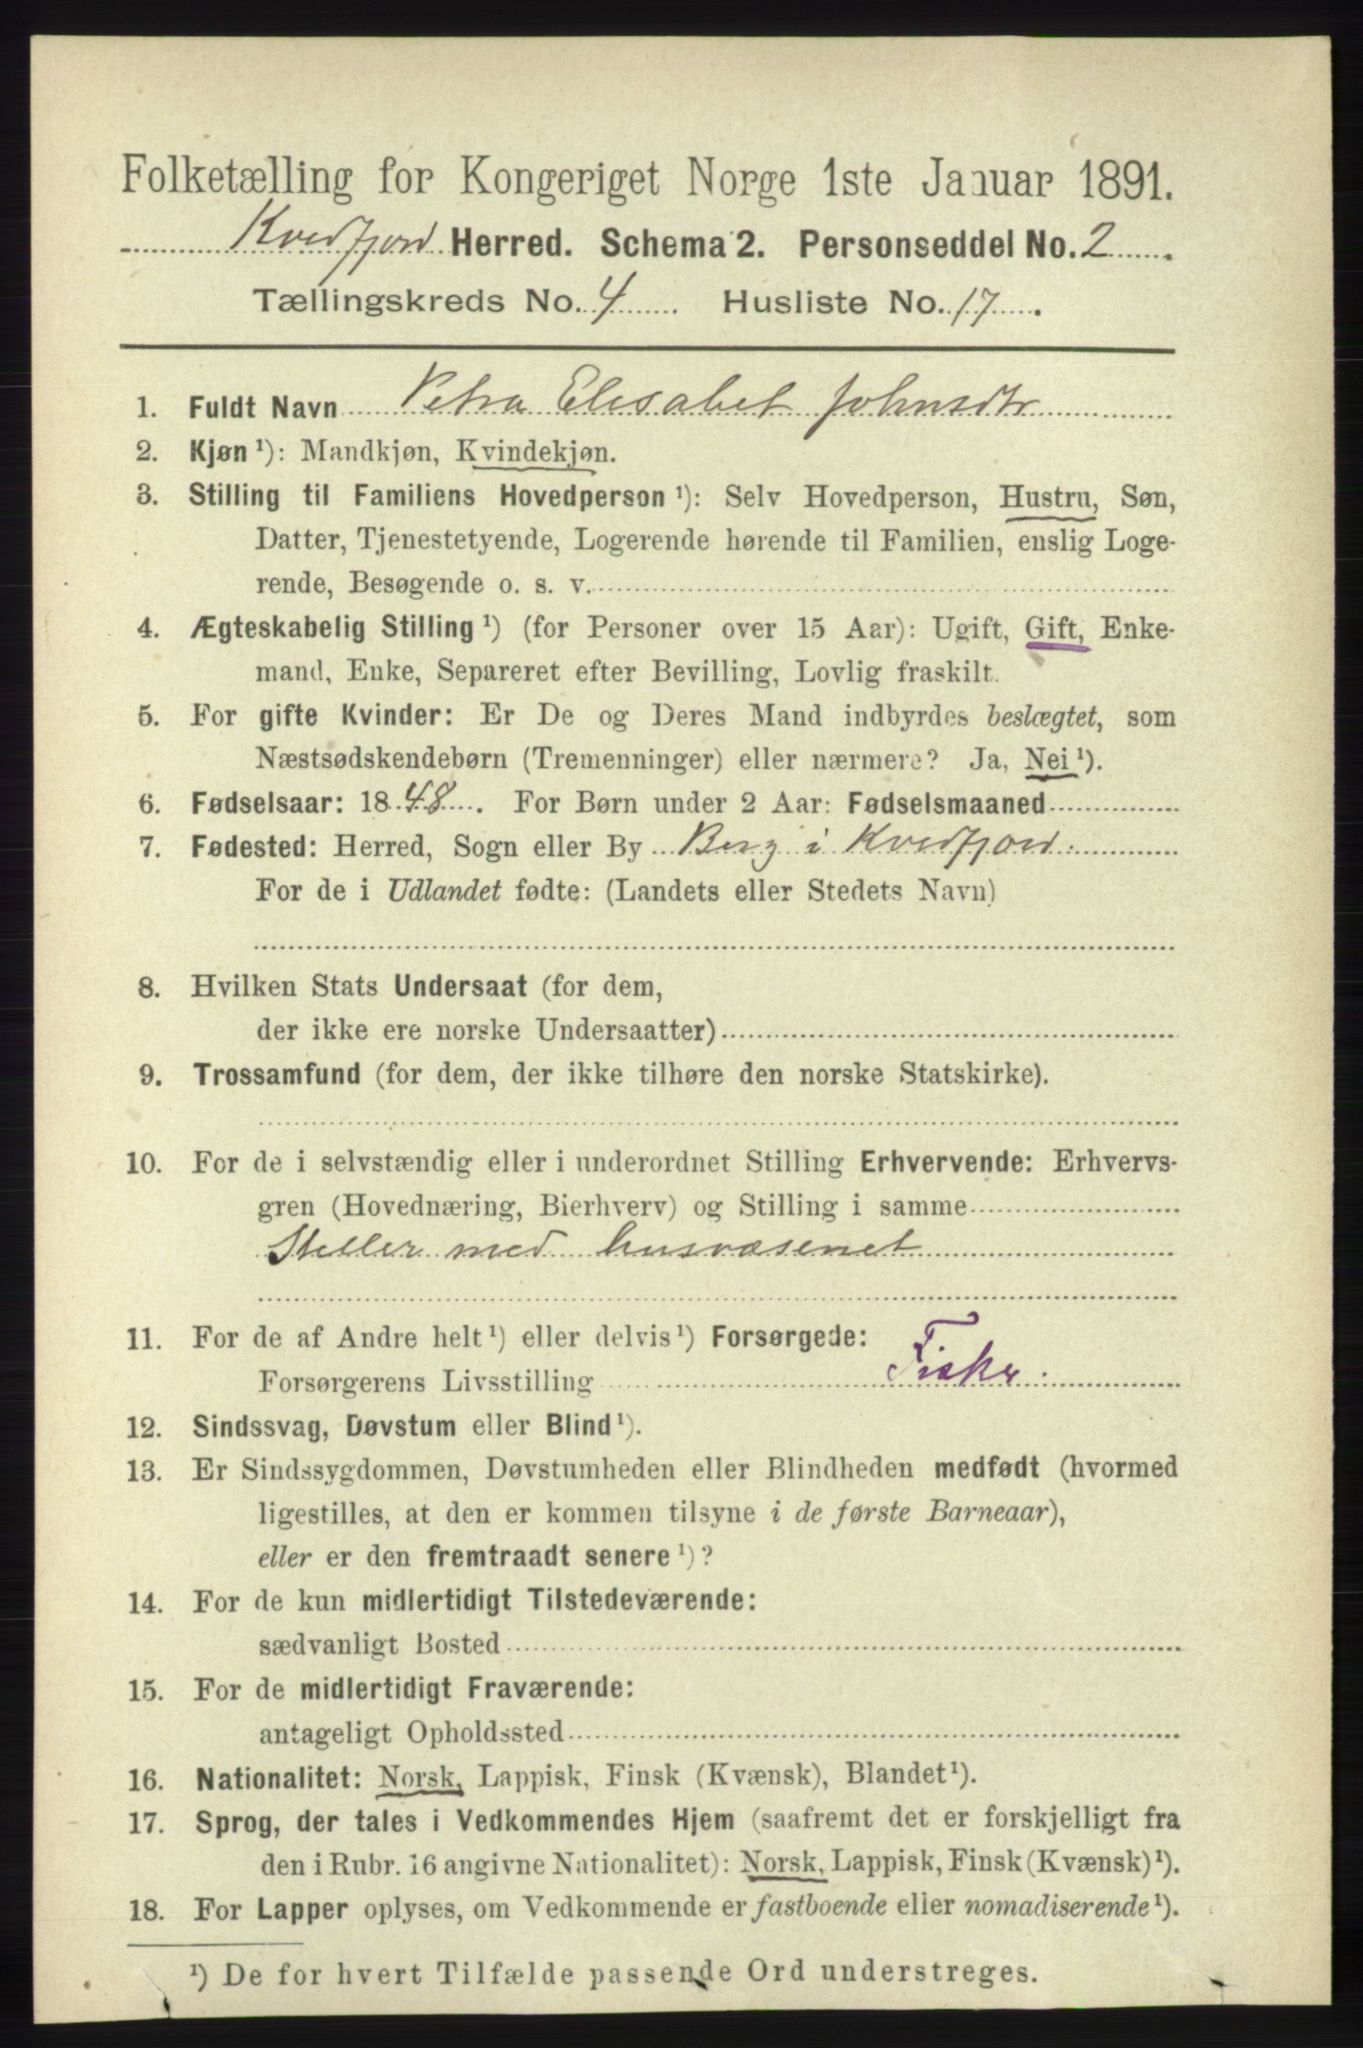 Folketælling for Kongeriget Norge 1ste Januar 1891.
Kvedfjord Herred. Schema 2. Personseddel No. 2
Tællingskreds No. 4 Husliste No. 17
1. Fuldt Navn Petra Elisabet Johnsdtr
2. Kjøn ¹): Mandkjøn, Kvindekjøn.
3. Stilling til Familiens Hovedperson ¹): Selv Hovedperson, Hustru, Søn,
Datter, Tjenestetyende, Logerende hørende til Familien, enslig Loge-
rende, Besøgende o. s. v.
4. Ægteskabelig Stilling ¹) (for Personer over 15 Aar): Ugift, Gift, Enke-
mand, Enke, Separeret efter Bevilling, Lovlig fraskilt.
5. For gifte Kvinder: Er De og Deres Mand indbyrdes beslægtet, som
Næstsødskendebørn (Tremenninger) eller nærmere? Ja, Nei ¹).
6. Fødselsaar: 1848. For Børn under 2 Aar: Fødselsmaaned
7. Fødested: Herred, Sogn eller By Berg i Kvedfjord.
For de i Udlandet fødte: (Landets eller Stedets Navn)
8. Hvilken Stats Undersaat (for dem,
der ikke ere norske Undersaatter)
9. Trossamfund (for dem, der ikke tilhøre den norske Statskirke).
10. For de i selvstændig eller i underordnet Stilling Erhvervende: Erhvervs-
gren (Hovednæring, Bierhverv) og Stilling i samme
Steller med husvæsenet
11. For de af Andre helt ¹) eller delvis ¹) Forsørgede:
Forsørgerens Livsstilling Fisker.
12. Sindssvag, Døvstum eller Blind ¹).
13. Er Sindssygdommen, Døvstumheden eller Blindheden medfødt (hvormed
ligestilles, at den er kommen tilsyne i de første Barneaar),
eller er den fremtraadt senere ¹)?
14. For de kun midlertidigt Tilstedeværende:
sædvanligt Bosted
15. For de midlertidigt Fraværende:
antageligt Opholdssted
16. Nationalitet: Norsk, Lappisk, Finsk (Kvænsk), Blandet ¹).
17. Sprog, der tales i Vedkommendes Hjem (saafremt det er forskjelligt fra
den i Rubr. 16 angivne Nationalitet): Norsk, Lappisk, Finsk (Kvænsk) ¹).
18. For Lapper oplyses, om Vedkommende er fastboende eller nomadiserende ¹).
¹) De for hvert Tilfælde passende Ord understreges.